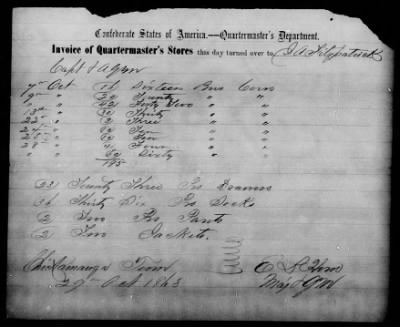 Confederate States of America.—Quartermaster's Department.
Invoice of Quartermaster's Stores this day turned over to J A Fitzpatrick
Capt & AQM
7th Oct 16 Sixteen Bus Corn
9" " 20 Twenty " "
" " 42 Forty Two " "
13th " 30 Thirty " "
22 " 3 Three " "
24 " Ten " "
" Ten " "
28 " 4 Four " "
60 Sixty "
195
23 Twenty Three Prs Drawers
36 Thirty Six Prs Socks
(2) Two Prs Pants
(2) Two Jackets.
Chickamauga Tenn
29 Oct 1863
Maj & QM